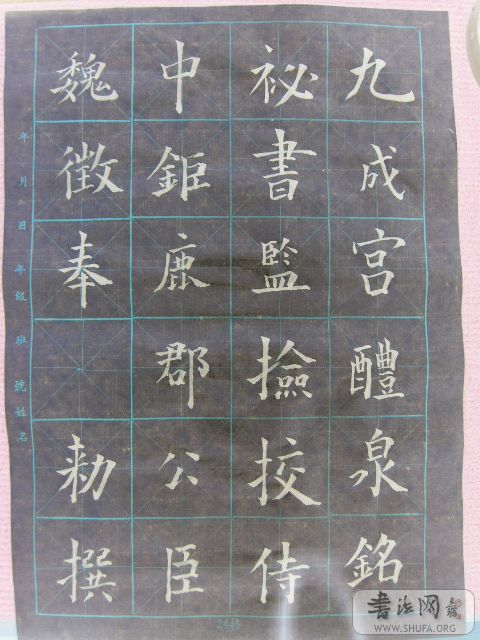 九成宮醴泉銘
祕書監撿挍侍
中鉅鹿郡公臣
魏徵奉 勑撰
年 月 日 年級 班 號姓名
24格
書法网
WWW.SHUFA.ORG